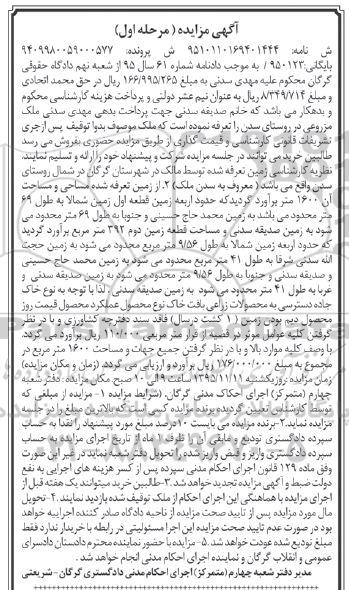 آگهی مزایده ( مرحله اول)
ش نامه: ۹۵۱۰۱۱۰۱۶۹۴۰۱۴۴۴ ش پرونده: ۹۴۰۹۹۸۰۰۵۹۰۰۰۵۷۷
بایگانی:۹۵۰۱۲۳ / به موجب دادنامه شماره ۶۱ سال ۹۵ از شعبه نهم دادگاه حقوقی
گرگان محکوم علیه مهدی سدنی به مبلغ ۱۶۶/۹۹۵/۲۶۵ ریال در حق محمد اتحادی
و مبلغ ۸/۳۴۹/۷۱۴ ریال به عنوان نیم عشر دولتی و پرداخت هزینه کارشناسی محکوم
و بدهکار می باشد که خانم صدیقه سدنی جهت پرداخت بدهی مهدی سدنی ملک
مزروعی در روستای سدن را تعرفه نموده است که ملک موصوف بدوا توقیف پس ازجری
تشریفات قانونی کارشناسی و قیمت گذاری از طریق مزایده حضوری بفروش می رسد
طالبین خرید می توانند در جلسه مزایده شرکت و پیشنهاد خود را ارئه و تسلیم نمایند.
نظریه کارشناسی زمین تعرفه شده توسط مالک در شهرستان گرگان در شمال روستای
سدن واقع می باشد ( معروف به سدن ملک) ۲. از زمین تعرفه شده مساحی و مساحت
آن ۱۶۰۰ متر برآورد گردیدکه حدود اربعه زمین قطعه اول زمین شمالا به طول ۶۹
متر محدود می باشد به زمین محمد حاج حسینی و جنوبا به طول ۶۹ متر محدود می
شود به زمین صدیقه سدنی و مساحت قطعه زمین دوم ۳۹۲ متر مربع برآورد گردید
که حدود اربعه زمین شمالا به طول ۹/۵۶ متر مربع محدود می شود به زمین حجت
الله سدنی شرقا به طول ۴۱ متر مربع محدود می شود به زمین محمد حاج حسینی
و صدیقه سدنی و جنوبا به طول ۹/۵۶ متر محدود می شود به زمین صدیقه سدنی و
غربا به طول ۴۱ متر محدود می شود به زمین صدیقه سدنی . لذا با توجه به نوع خاک
جاده دسترسی به محصولات زراعی بافت خاک نوع محصول عملکرد محصول قیمت روز
محصول دیم بودن زمین (۱ کشت در سال) فاقد سند دفترچه کشاورزی و با در نظر
گرفتن کلیه عوامل موثر در قضیه از قرار متر مربعی ۱۱۰/۰۰۰ ریال برآورد می گردد.
با وصف کلیه موارد بالا و با در نظر گرفتن جمیع جهات و مساحت ۱۶۰۰ متر مربع در
مجموع به مبلغ ۱۷۶/۰۰۰/۰۰۰ ریال برآورد و ارزیابی می گردد. (زمان و مکان مزایده)
زمان مزایده روزیکشنبه ۱۳۹۵/۱۱/۱۱ ساعت ۹ الی ۱۰ صبح مکان مزایده: دفتر شعبه
چهارم (متمرکز) اجرای احکام مدنی گرگان. (شرایط مزایده ۱- مزایده از مبلغی که
توسط کارشناس تعیین گردیده برنده مزایده کیس است که بالاترین مبلغ را در جلسه
مزایده نماید.۲-برنده مزایده می بایست ۱۰درصد مبلغ مورد پیشنهاد را نقدا به حساب
سپرده دادگستری تودیع و مابقی را از ظرف ۱ ماه از تاریخ اجرای مزایده به حساب
سپرده دادگستری واریز و قبض واریز شده را تحویل دفتر شعبه نماید در غیر این صورت
وفق ماده ۱۲۹ قانون اجرای احکام مدنی سپرده پس از کسر هزینه های اجرایی به نفع
دولت ضبط و آگهی مزایده تجدید خواهد شد.۳-طالبین خرید میتوانند یک هفته قبل از
اجرای مزایده با هماهنگی این اجرای احکام از ملک توقیف شده بازدید نمایند. ۴-تحویل
مال مورد مزایده پس از تایید صحت مزایده از ناحیه دادگاه صادر کننده اجراییه خواهد
بود در صورت عدم تایید صحت مزایده این اجرا مسئولیتی در رابطه با خریدار ندارد فقط
مبلغ تودیع شده عودت خواهد شد .۵-مزایده با حضور نماینده محترم دادستان دادسرای
عمومی و انقلاب گرگان و نماینده اجرای احکام مدنی انجام خواهد شد .
مدیر دفتر شعبه چهارم (متمرکز) اجرای احکام مدنی دادگستری گرگان–شریعتی